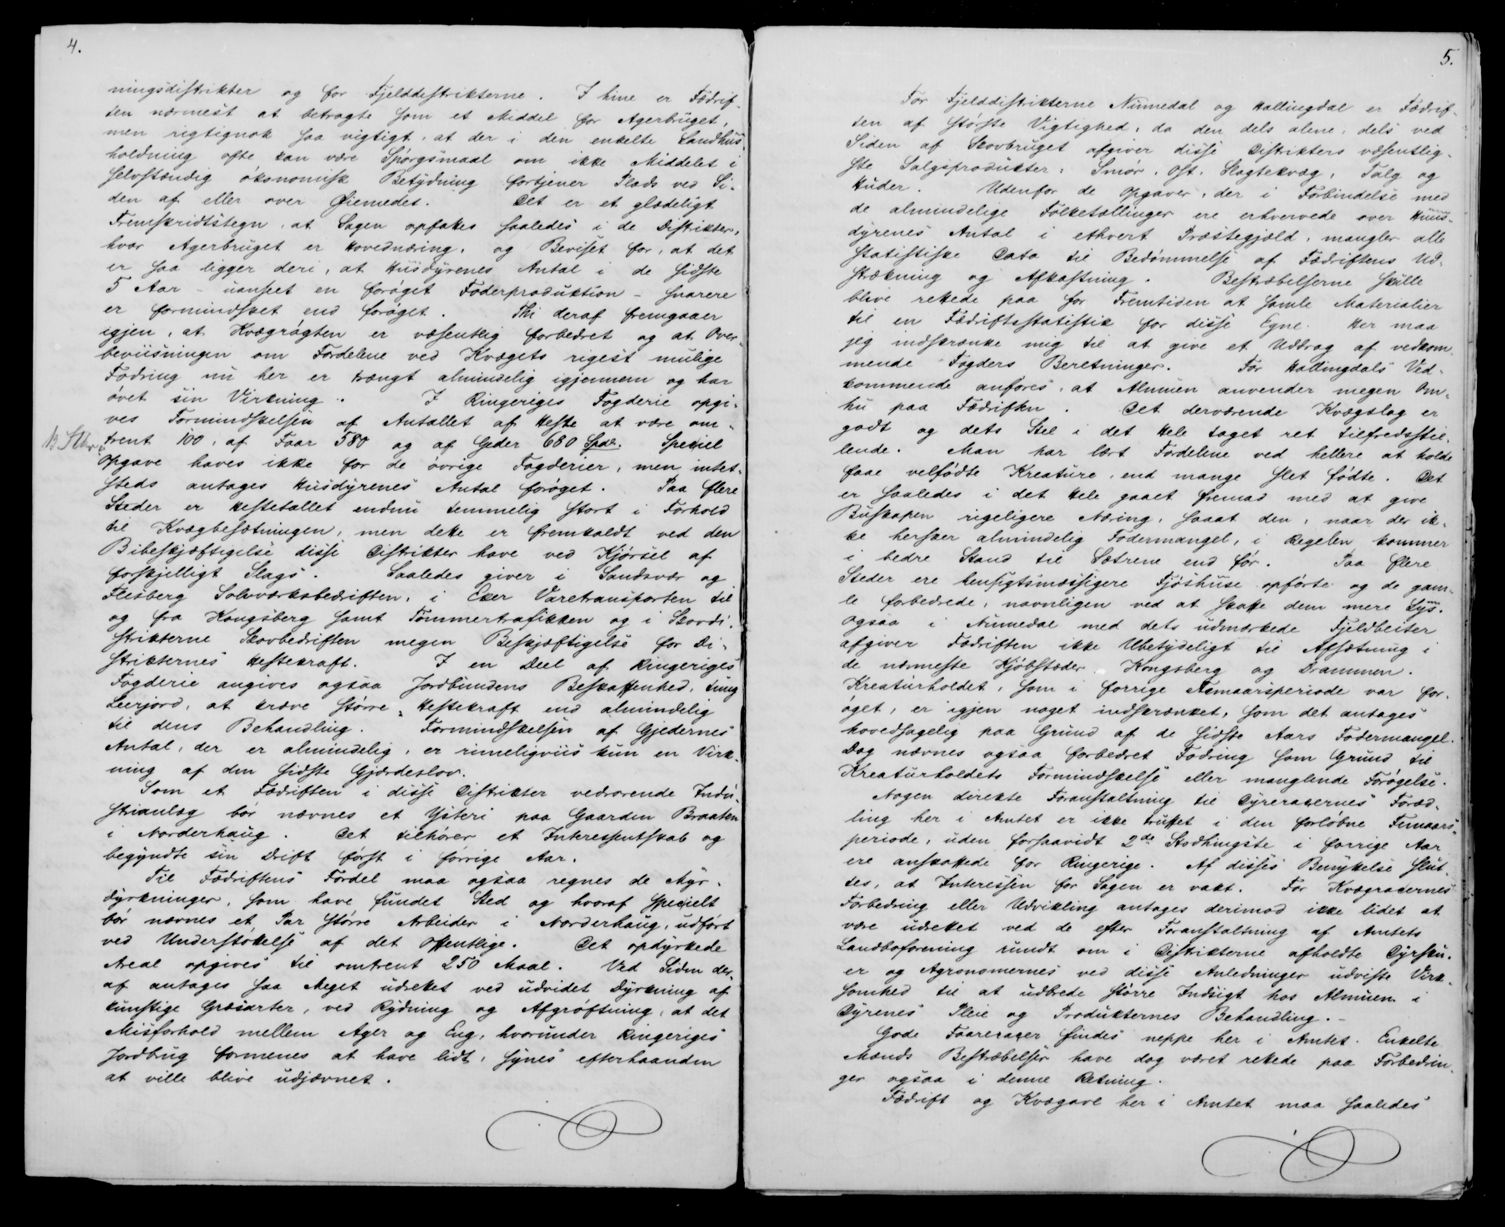 4.
ningsdistrikter og for Fjelddistrikterne. I hine er Fædrif-
ten nærmest at betragte som et Middel for Agerbruget,
men rigtignok saa vigtigt, at der i den enkelte Landhus-
holdning ofte kan være Spörgsmaal om ikke Middelet i
selvstændig ökonomisk Betydning fortjener Plads ved Si-
den af eller over Öiemedet. Det er et glædeligt
Fremskridtstegn, at Sagen opfates saaledes i de Distrikter,
hvor Agerbruget er Hovednæring, og Beviset for, at det
er saa ligger deri, at Husdyrenes Antal i de sidste
5 Aar - uanset en foröget Foderproduktion - snarere
er formindsket end foröget. Thi deraf fremgaaer
igjen, at Kvægrögten er væsentlig forbedret og at Over-
beviisningen om Fordelene ved Kvægets rigest mulige
Fodring nu her er trængt almindelig igjennem og har
övet sin Virkning. I Ringeriges Fogderie opgi-
ves Formindskelsen af Antallet af Heste at være om-
trent 100, af Faar 580 og af Geder 660 Spdl. Speciel
B Stkr.
Opgave haves ikke for de övrige Fogderier, men intet-
steds antages Husdyrenes Antal foröget. Paa flere
Steder er Hestetallet endnu temmelig stort i Forhold
til Kvægbesætningen, men dette er fremkaldt ved den
Bibeskjæftigelse disse Distrikter have ved Kjörsel af
forskjelligt Slags. Saaledes giver i Sandsvær og
Flesberg Sölvværksbedriften, i Eker Varetransporten til
og fra Kongsberg samt Tömmertrafikken og i Skovdi-
strikterne Skovbedriften megen Beskjæftigelse for Di-
strikternes Hestekraft. I en Deel af Ringeriges
Fogderie angives ogsaa Jordbundens Beskaffenhed, tung
Leerjord, at kræve större Hestekraft end almindelig
til dens Behandling. Formindskelsen af Gjedernes
Antal, der er almindelig, er rimeligviis kun en Virk-
ning af den sidste Gjærdeslov.
Som et Fædriften i disse Distrikter vedrörende Indu-
strianlæg bör nævnes et Ysteri paa Gaarden Braaten
i Norderhaug. Det tilhörer et Interessentskab og
begyndte sin Drift först i forrige Aar.
Til Fædriftens Fordel maa ogsaa regnes de Myr-
dyrkninger, som have fundet Sted og hvoraf specielt
bör nævnes et Par större Arbeider i Norderhaug, udfört
ved Understöttelse af det Offentlige. Det opdyrkede
Areal opgives til omtrent 250 Maal. Ved Siden der-
af antages saa Meget udrettet ved udvidet Dyrkning af
kunstige Græsarter, ved Rydning og Afgröftning, at det
Misforhold mellem Ager og Eng, hvorunder Ringeriges
Jordbrug formenes at have lidt, synes efterhaanden
at ville blive udjævnet.
5.
For Fjelddistrikterne Numedal og Hallingdal er Fædrif-
ten af störste Vigtighed, da den dels alene, dels ved
Siden af Skovbruget afgiver disse Distrikters væsentlig-
ste Salgsprodukter: Smör, Ost, Slagtekvæg, Talg og
Huder. Udenfor de Opgaver, der i Forbindelse med
de almindelige Folketællinger ere erhvervede over Huus-
dyrenes Antal i ethvert Præstegjæld, mangler alle
statistiske Data til Bedömmelse af Fædriftens Ud-
strækning og Afkastning. Bestræbelserne skulle
blive rettede paa for Fremtiden at samle Materialier
til en Fædriftsstatistik for disse Egne. Her maa
jeg indskrænke mig til at give et Uddrag af vedkom-
mende Fogders Beretninger. For Hallingdals Ved-
kommende anföres, at Almuen anvender megen Om-
hu paa Fædriften. Det derværende Kvægslag er
godt og dets Stel i det Hele taget ret tilfredsstil-
lende. Man har lært Fordelene ved hellere at holde
faae velfödte Kreature, end mange slet födte. Det
er saaledes i det Hele gaaet fremad med at give
Buskapen rigeligere Næring, saaat den, naar der ik-
ke hersker almindelig Fodermangel, i Regelen kommer
i bedre Stand til Sætrene end för. Paa flere
Steder ere hensigtsmæssigere Fjöshuse opförte og de gam-
le forbedrede, navnligen ved at skaffe dem mere Lys.
Ogsaa i Numedal med dets udmærkede Fjeldbeiter
afgiver Fædriften ikke Ubetydeligt til Afsætning i
de nærmeste Kjöbstæder Kongsberg og Drammen.
Kreaturholdet, som i forrige Femaarsperiode var for-
öget, er igjen noget indskrænket, som det antages
hovedsagelig paa Grund af de sidste Aars Fodermangel.
Dog nævnes ogsaa forbedret Fodring som Grund til
Kreaturholdets Formindskelse eller manglende Forögelse.
Nogen direkte Foranstaltning til Dyreracernes Foræd-
ling her i Amtet er ikke truffet i den forlöbne Femaars-
periode, uden forsaavidt 2de Stodhingste i forrige Aar
ere anskaffede for Ringerige. Af disses Benyttelse slut-
tes, at Interessen for Sagen er vakt. For Kvægracernes
Forbedring eller Udvikling antages derimod ikke lidet at
være udrettet ved de efter Foranstaltning af Amtets
Landboforening rundt om i Distrikterne afholdte Dyrsku-
er og Agronomernes ved disse Anledninger udviste Virk-
somhed til at udbrede större Indsigt hos Almuen i
Dyrenes Pleie og Produkternes Behandling. -
Gode Faareracer findes neppe her i Amtet. Enkelte
Mænds Bestræbelser have dog været rettede paa Forbedrin-
ger ogsaa i denne Retning.
Fædrift og Kvægavl her i Amtet maa saaledes